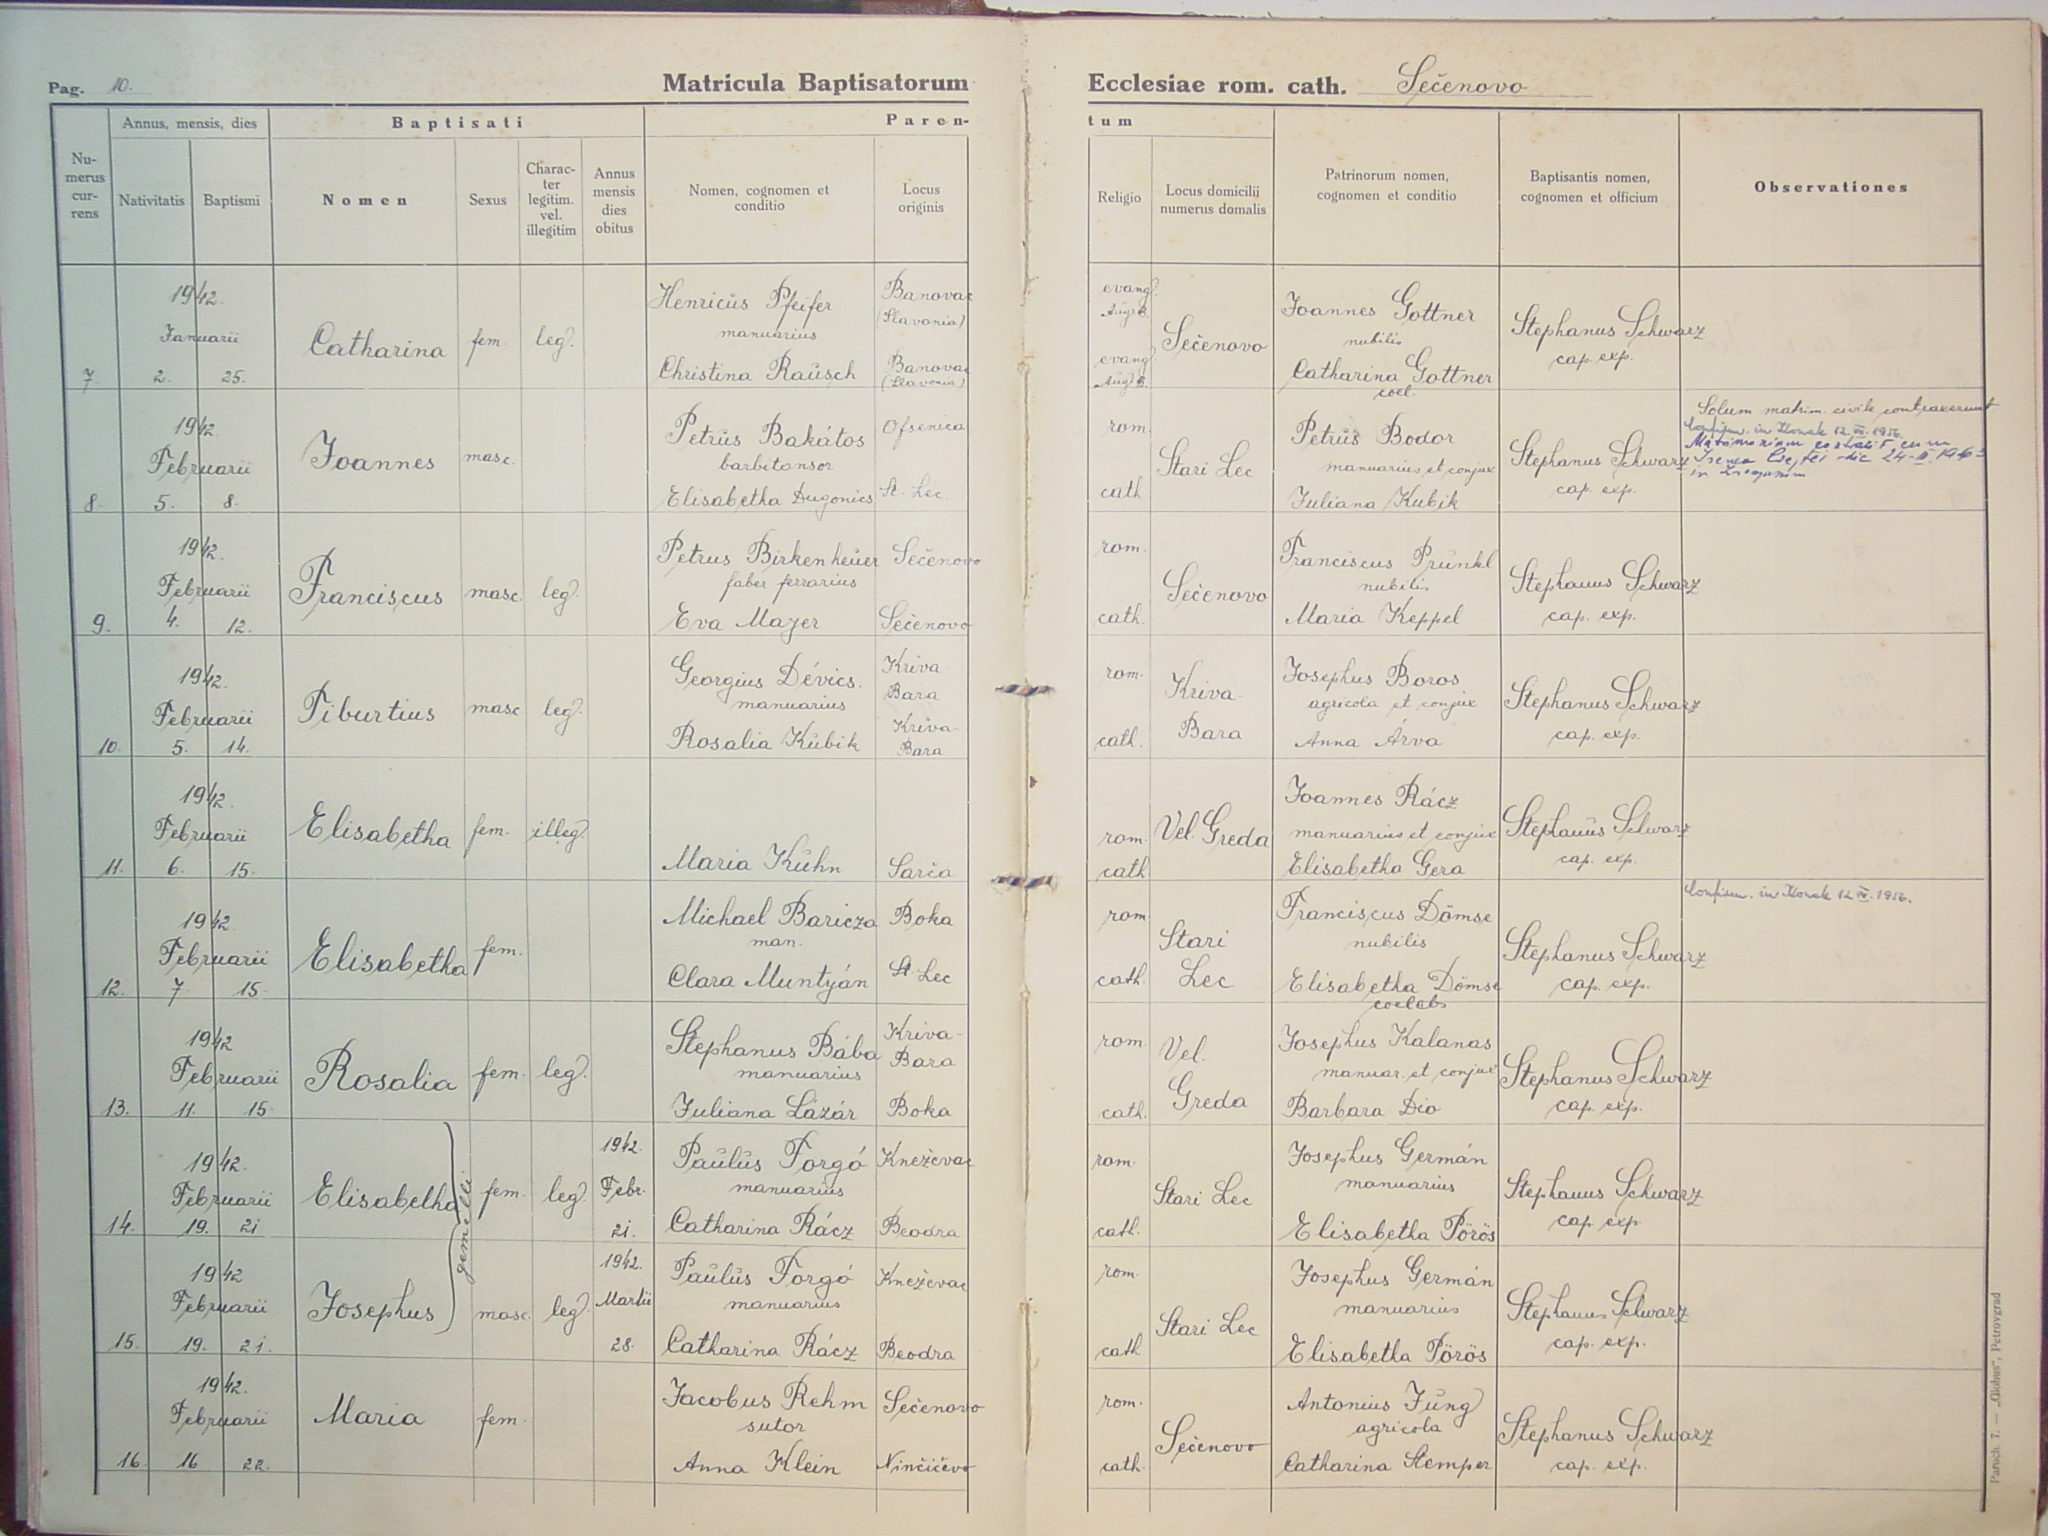 Pag. 10. Matricula Baptisatorum Ecclesiae rom. cath. Sečenovo
Numerus currens
Annus, mensis, dies
Nativitatis
Baptismi
Baptisati
Nomen
Sexus
Charac-
ter
legitim.
vel.
illegitim
Annus
mensis
dies
obitus
Paren-
tum
Nomen, cognomen et
conditio
Locus
originis
Religio
Locus domicilii
numerus domalis
Patrinorum nomen,
cognomen et conditio
Baptisantis nomen,
cognomen et officium
Observationes
7. 1942. Januarii 2. 25.
Catharina fem. leg.
Henricus Pfeifer manuarius
Banovac (Slavonia)
Christina Rausch
Banovac (Slavonia)
evang. Aug. B.
evang. Aug. B.
Sečenovo
Joannes Gottner
nubilis
Catharina Gottner
coel.
Stephanus Schwarz
cap. exp.
8. 1942. Februarii 5. 8.
Joannes masc.
Petrus Bakátos
barbitonsor
Ofsenica
Elisabetha Dugonics
St. Lec.
rom. cath.
Stari Lec
Petrus Bodor
manuarius et conjux
Juliana Kubik
Stephanus Schwarz
cap. exp.
Solum matrim. civile contraxerunt
9. 1942. Februarii 4. 12.
Franciscus masc. leg.
Petrus Birkenheuer
faber ferrarius
Sečenovo
Eva Mayer
Sečenovo
rom. cath.
Sečenovo
Franciscus Prünkl
nubilis
Maria Keppel
Stephanus Schwarz
cap. exp.
10. 1942. Februarii 5. 14.
Tiburtius masc leg.
Georgius Dévics.
manuarius
Kriva-
Bara
Rosalia Kubik
Kriva-
Bara
rom. cath.
Kriva-
Bara
Josephus Boros
agricola et conjux
Anna Árva
Stephanus Schwarz
cap. exp.
11. 1942. Februarii 6. 15.
Elisabetha fem. illeg.
Maria Kühn
Sarča
rom. cath
Vel. Greda
Joannes Rácz
manuarius et conjux
Elisabetha Gera
Stephanus Schwarz
cap. exp.
12. 1942 Februarii 7. 15.
Elisabetha fem.
Michael Baricza
man.
Boka
Clara Muntyán
St. Lec
rom. cath.
Stari
Lec
Franciscus Dömse
nubilis
Elisabetha Dömse
coelebs
Stephanus Schwarz
cap. exp.
13. 1942 Februarii 11. 15.
Rosalia fem. leg.
Stephanus Bába
manuarius
Kriva-
Bara
Juliana Lázár
Boka
rom. cath.
Vel.
Greda
Josephus Kalanas
manuar. et conjux
Barbara Dio
Stephanus Schwarz
cap. exp.
14. 1942. Februarii 19. 21
Elisabetha fem. leg.
gemelli
1942. Febr. 21.
Paulus Forgó
manuarius
Kneževac
Catharina Rácz
Beodra
rom. cath.
Stari Lec
Josephus Germán
manuarius
Elisabetha Pörös
Stephanus Schwarz
cap. exp.
15. 1942 Februarii 19. 21.
Josephus masc. leg.
1942. Martii 28.
Paulus Forgó
manuarius
Kneževac
Catharina Rácz
Beodra
rom. cath.
Stari Lec
Josephus Germán
manuarius
Elisabetha Pörös
Stephanus Schwarz
cap. exp.
16. 1942. Februarii 16 22.
Maria fem.
Jacobus Rehm
sutor
Sečenovo
Anna Klein
Ninčičevo
rom. cath.
Sečenovo
Antonius Jung
agricola
Catharina Stemper
Stephanus Schwarz
cap. exp.
Paroch. 7. — „Globus“, Petrovgrad